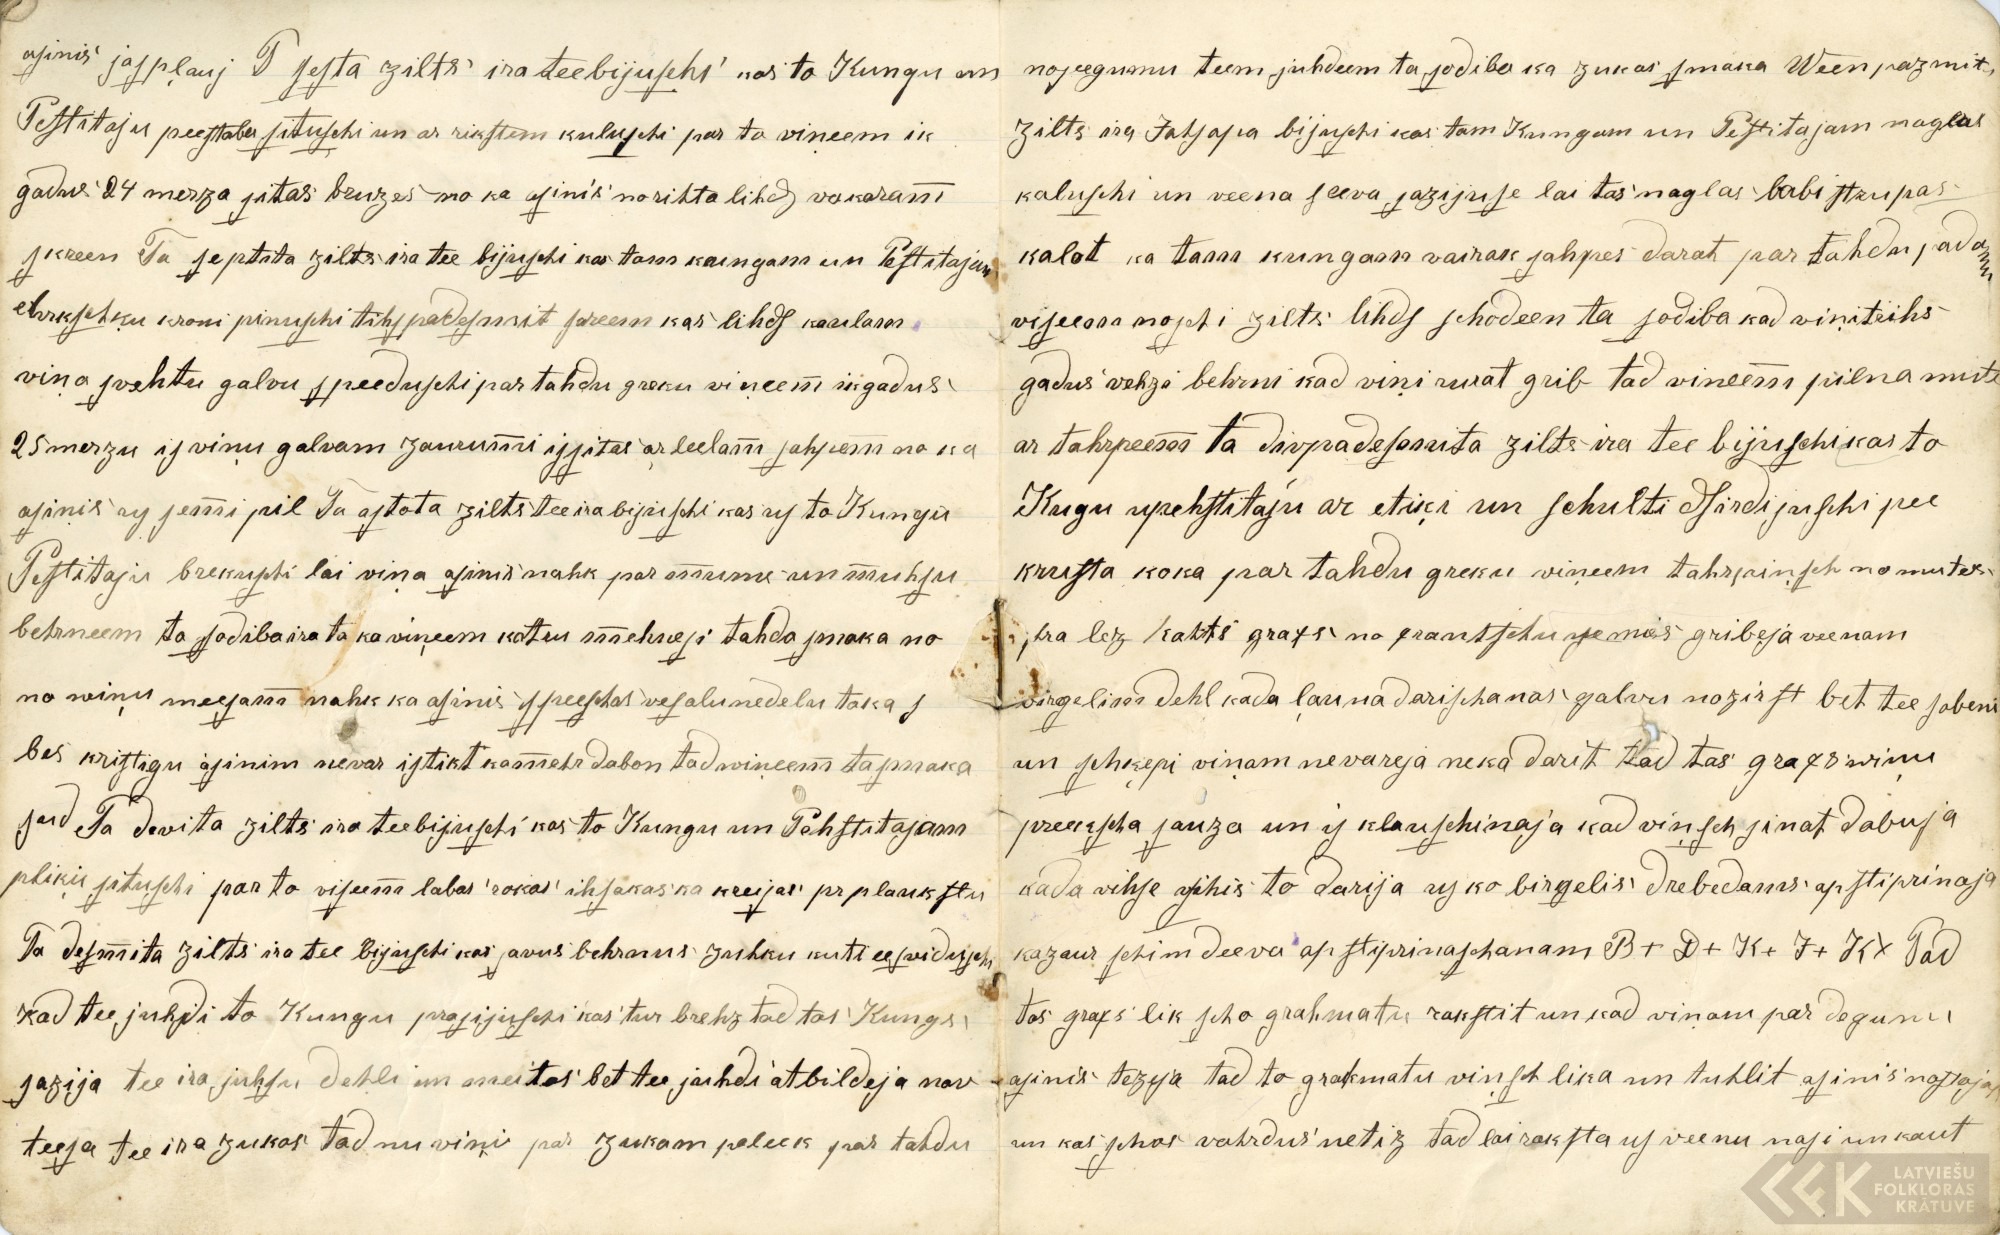 asinis jaspļauj T sesta zilts ira tee bijuschi kas to Kungu un
Pestitaju peestaba situschi un ar rikstem kuluschi par to viņeem ik
gadus 24 merza sitas bruzes no ka asinis no rihta lihds vakaram
skreen Ta septita zilts ira tee bijuschi kas tam kungam un Pestitajam
ehrkschķu kroni pinuschi tihspadesmit sareem kas lihds kaulam
viņa svehtu galvu speeduschi par tahdu greku viņeem ik gadus
25 merzu is viņu galvam zaurumi issitas ar leelam sahpem no ka
asinis us semi pil Ta astota zilts tee ira bijuschi kas us to Kungu
Pestitaju brekuschi lai viņa asinis nahk par mums un muhsu
behrneem ta sodiba ira ta ka viņeem katru mehnesi tahda smaka no
no wiņu meesam nahk ka asinis speeschas veselu nedelu taka s
bes kristigu asinim nevar istikt kamehr dabon tad wiņeem ta smaka
sud Ta devita zilts ira tee bijuschi kas to Kungu un Pehstitajam
pliķu situschi par to viseem labas rokas ihsakas ka kreijas pr plaukstu
Ta desmita zilts ira tee bijuschi kas savus behrnus zuhku kuti eesviduschi
kad tee juhdi to Kungu prasijuschi kas tur brehz tad tas Kungs
sazija tee ira juhsu dehli un meitas bet tee juhdi atbildeja nav
teesa tee ira zukas tad nu viņi par zukam paleek par tahdu
noseegumu teem juhdeem ta sodiba ka zukas smaka Ween pazmit
zilts ira Jahsapa bijuschi kas tam Kungam un Pestitajam naglas
kaluschi un veena seeva sazijuse lai tas naglas labi strupas
kalat ka tam kungam vairak sahpes darat par tahdu padamu
viseem noschi zilts lihds schodeen ta sodiba kad viņi trihs
gadus vehzi behrni kad viņi runat grib tad vineem pilna mute
ar tahrpeem ta divpadesmita zilts ira tee bijuschi kas to
Kugu upehstitaju ar etiķi un schulti dsirdijuschi pee
krusta koka par tahdu greku viņeem tahrpiņsch no mutes
sra lez Kahts grafs no frantschu semes gribeja veenam
birgelim dehl kada ļauna darischanas galvu nozirst bet tee sobeni
un schķepi viņam nevareja neka darit tad tas grafs wiņu
preekscha sauza un is klauschinaja kad viņsch sinat dabuja
kada vihse schis to darija us ko birgelis drebedams apstiprinaja
ka zaur schim deeva apstiprinaschanam B + D + K + J + K x Tad
tas grafs lik scho grahmatu rakstit un kad viņam par degunu
asinis tezeja tad to grahmatu viņsch lika un tuhlit asinis nostajas
un kas schos vahrdus netiz tad lai raksta us veenu nasi un kaut
LATVIEŠU
FOLKLORAS
KRĀTUVE